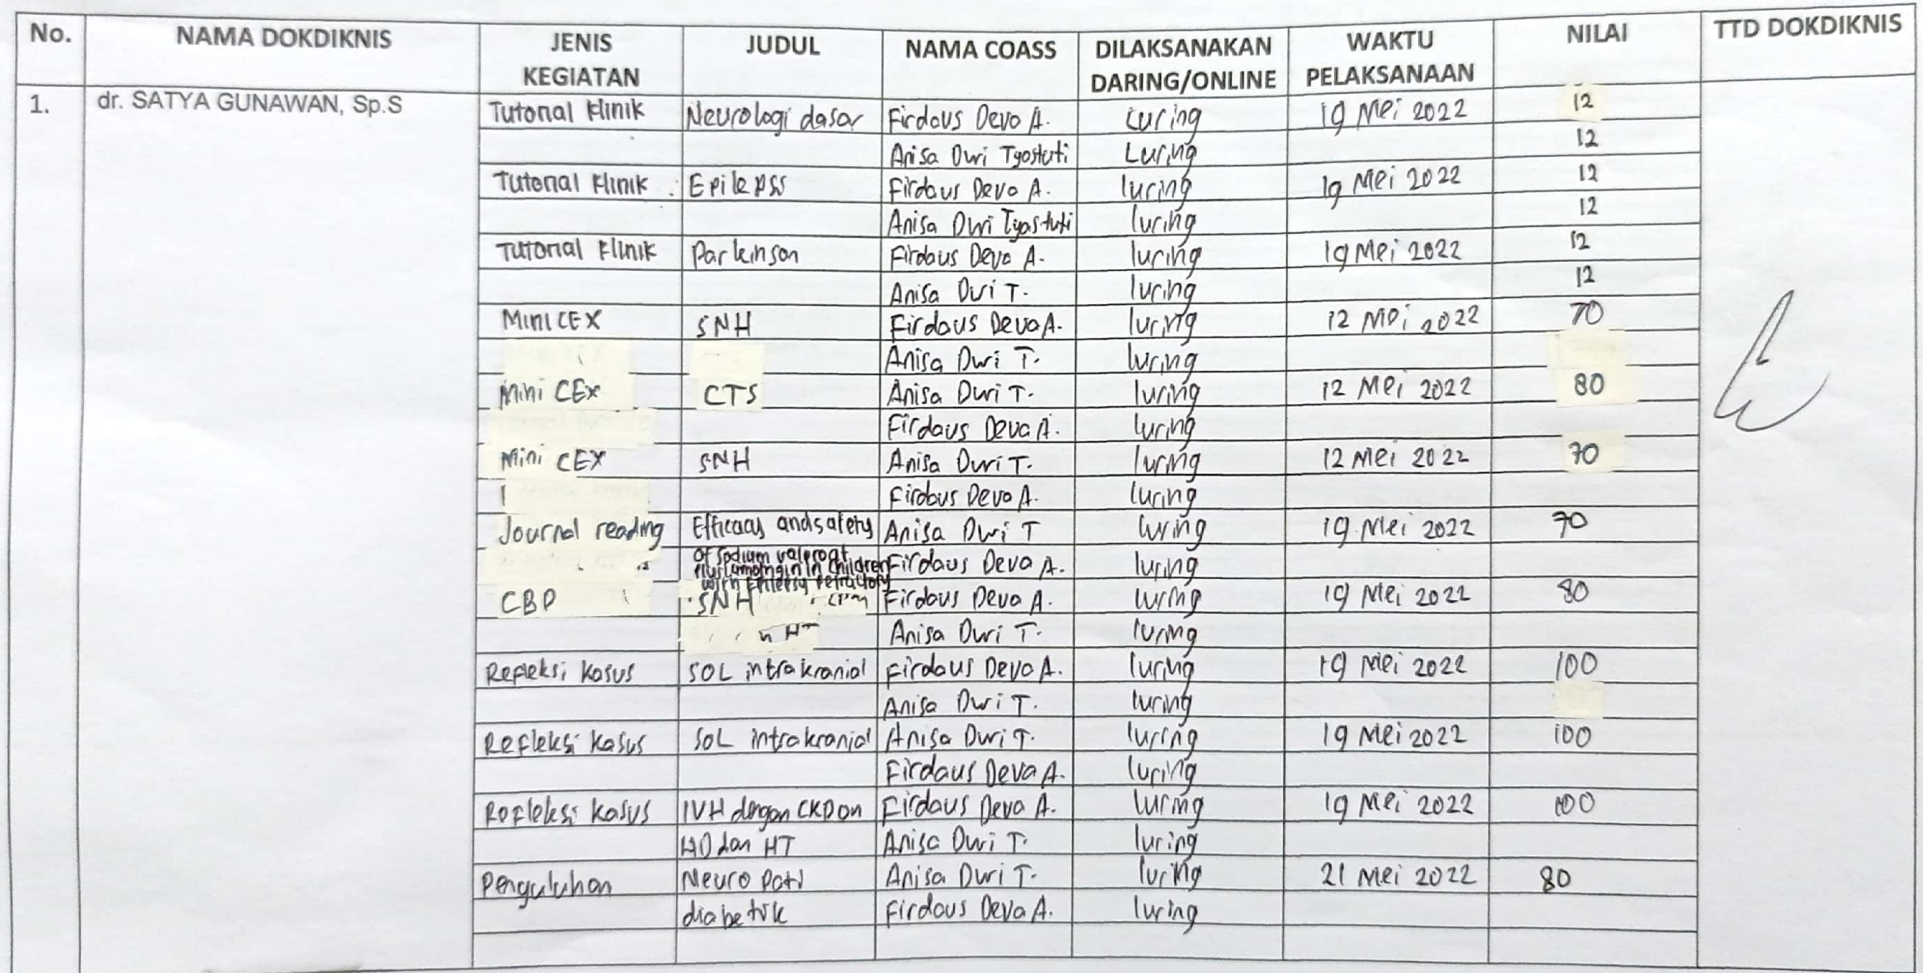 No. NAMA DOKDIKNIS JENIS KEGIATAN JUDUL NAMA COASS DILAKSANAKAN DARING/ONLINE WAKTU PELAKSANAAN NILAI TTD DOKDIKNIS
1. dr. SATYA GUNAWAN, Sp.S Tutorial klinik Neurologi dasar Firdaus Deva A. Luring 19 Mei 2022 12
Anisa Dwi Tyastuti Luring 12
Tutorial klinik Epilepsi Firdaus Deva A. luring 19 Mei 2022 12
Anisa Dwi Tyastuti luring 12
Tutorial klinik Parkinson Firdaus Deva A. luring 19 Mei 2022 12
Anisa Dwi T. luring 12
Mini CEX SNH Firdaus Deva A. luring 12 Mei 2022 70
Anisa Dwi T. luring
Mini CEX CTS Anisa Dwi T. luring 12 Mei 2022 80
Firdaus Deva A. luring
Mini CEX SNH Anisa Dwi T. luring 12 Mei 2022 70
Firdaus Deva A. luring
Journal reading Efficacy and safety Anisa Dwi T luring 19 Mei 2022 70
of sodium valproat
in children Firdaus Deva A. luring
with refractory
CBD SNH Firdaus Deva A. luring 19 Mei 2022 80
HT Anisa Dwi T. luring
Refleksi kasus SOL intrakranial Firdaus Deva A. luring 19 Mei 2022 100
Anisa Dwi T. luring
Refleksi kasus SOL intrakranial Anisa Dwi T. luring 19 Mei 2022 100
Firdaus Deva A. luring
Refleksi kasus IVH dengan CKD on Firdaus Deva A. luring 19 Mei 2022 100
HD dan HT Anisa Dwi T. luring
Penyuluhan Neuro Pati Anisa Dwi T. luring 21 Mei 2022 80
diabetik Firdaus Deva A. luring